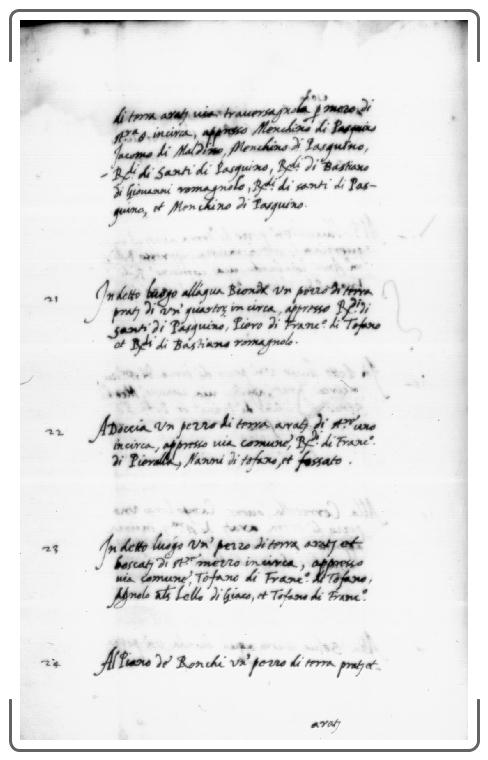 di terra arat: via traversagnola p mezo di
str.a 8 incirca, appresso Menchino di Pasquino
Jacomo di Maldino, Menchino di Pasquino,
R.di di Santi di Pasquino, R.di di Bastiano
di Giovanni romagnolo, R.di di santi di Pas-
quino, et Menchino di Pasquino.
21 In detto luogo all'aqua Bionda un pezzo di terra
prat: di un quarto incirca, appresso R.di di
Santi di Pasquino, Piero di Franc.o di Tofano
et R.di di Bastiano romagnolo.
22 A Doccia un pezzo di terra arat: di st.ro uno
incirca, appresso via comune, R.di di Franc.o
di Pieralla, Nanni di tofano, et fossato.
23 In detto luogo un pezzo di terra arat: et
boscat: di st.ro mezzo incirca, appresso
via comune, Tofano di Franc.o di Tofano,
Agnolo als bello di Giaco, et Tofano di Franc.o
24 Al Piano de Ronchi un pezzo di terra prat: et
arat: